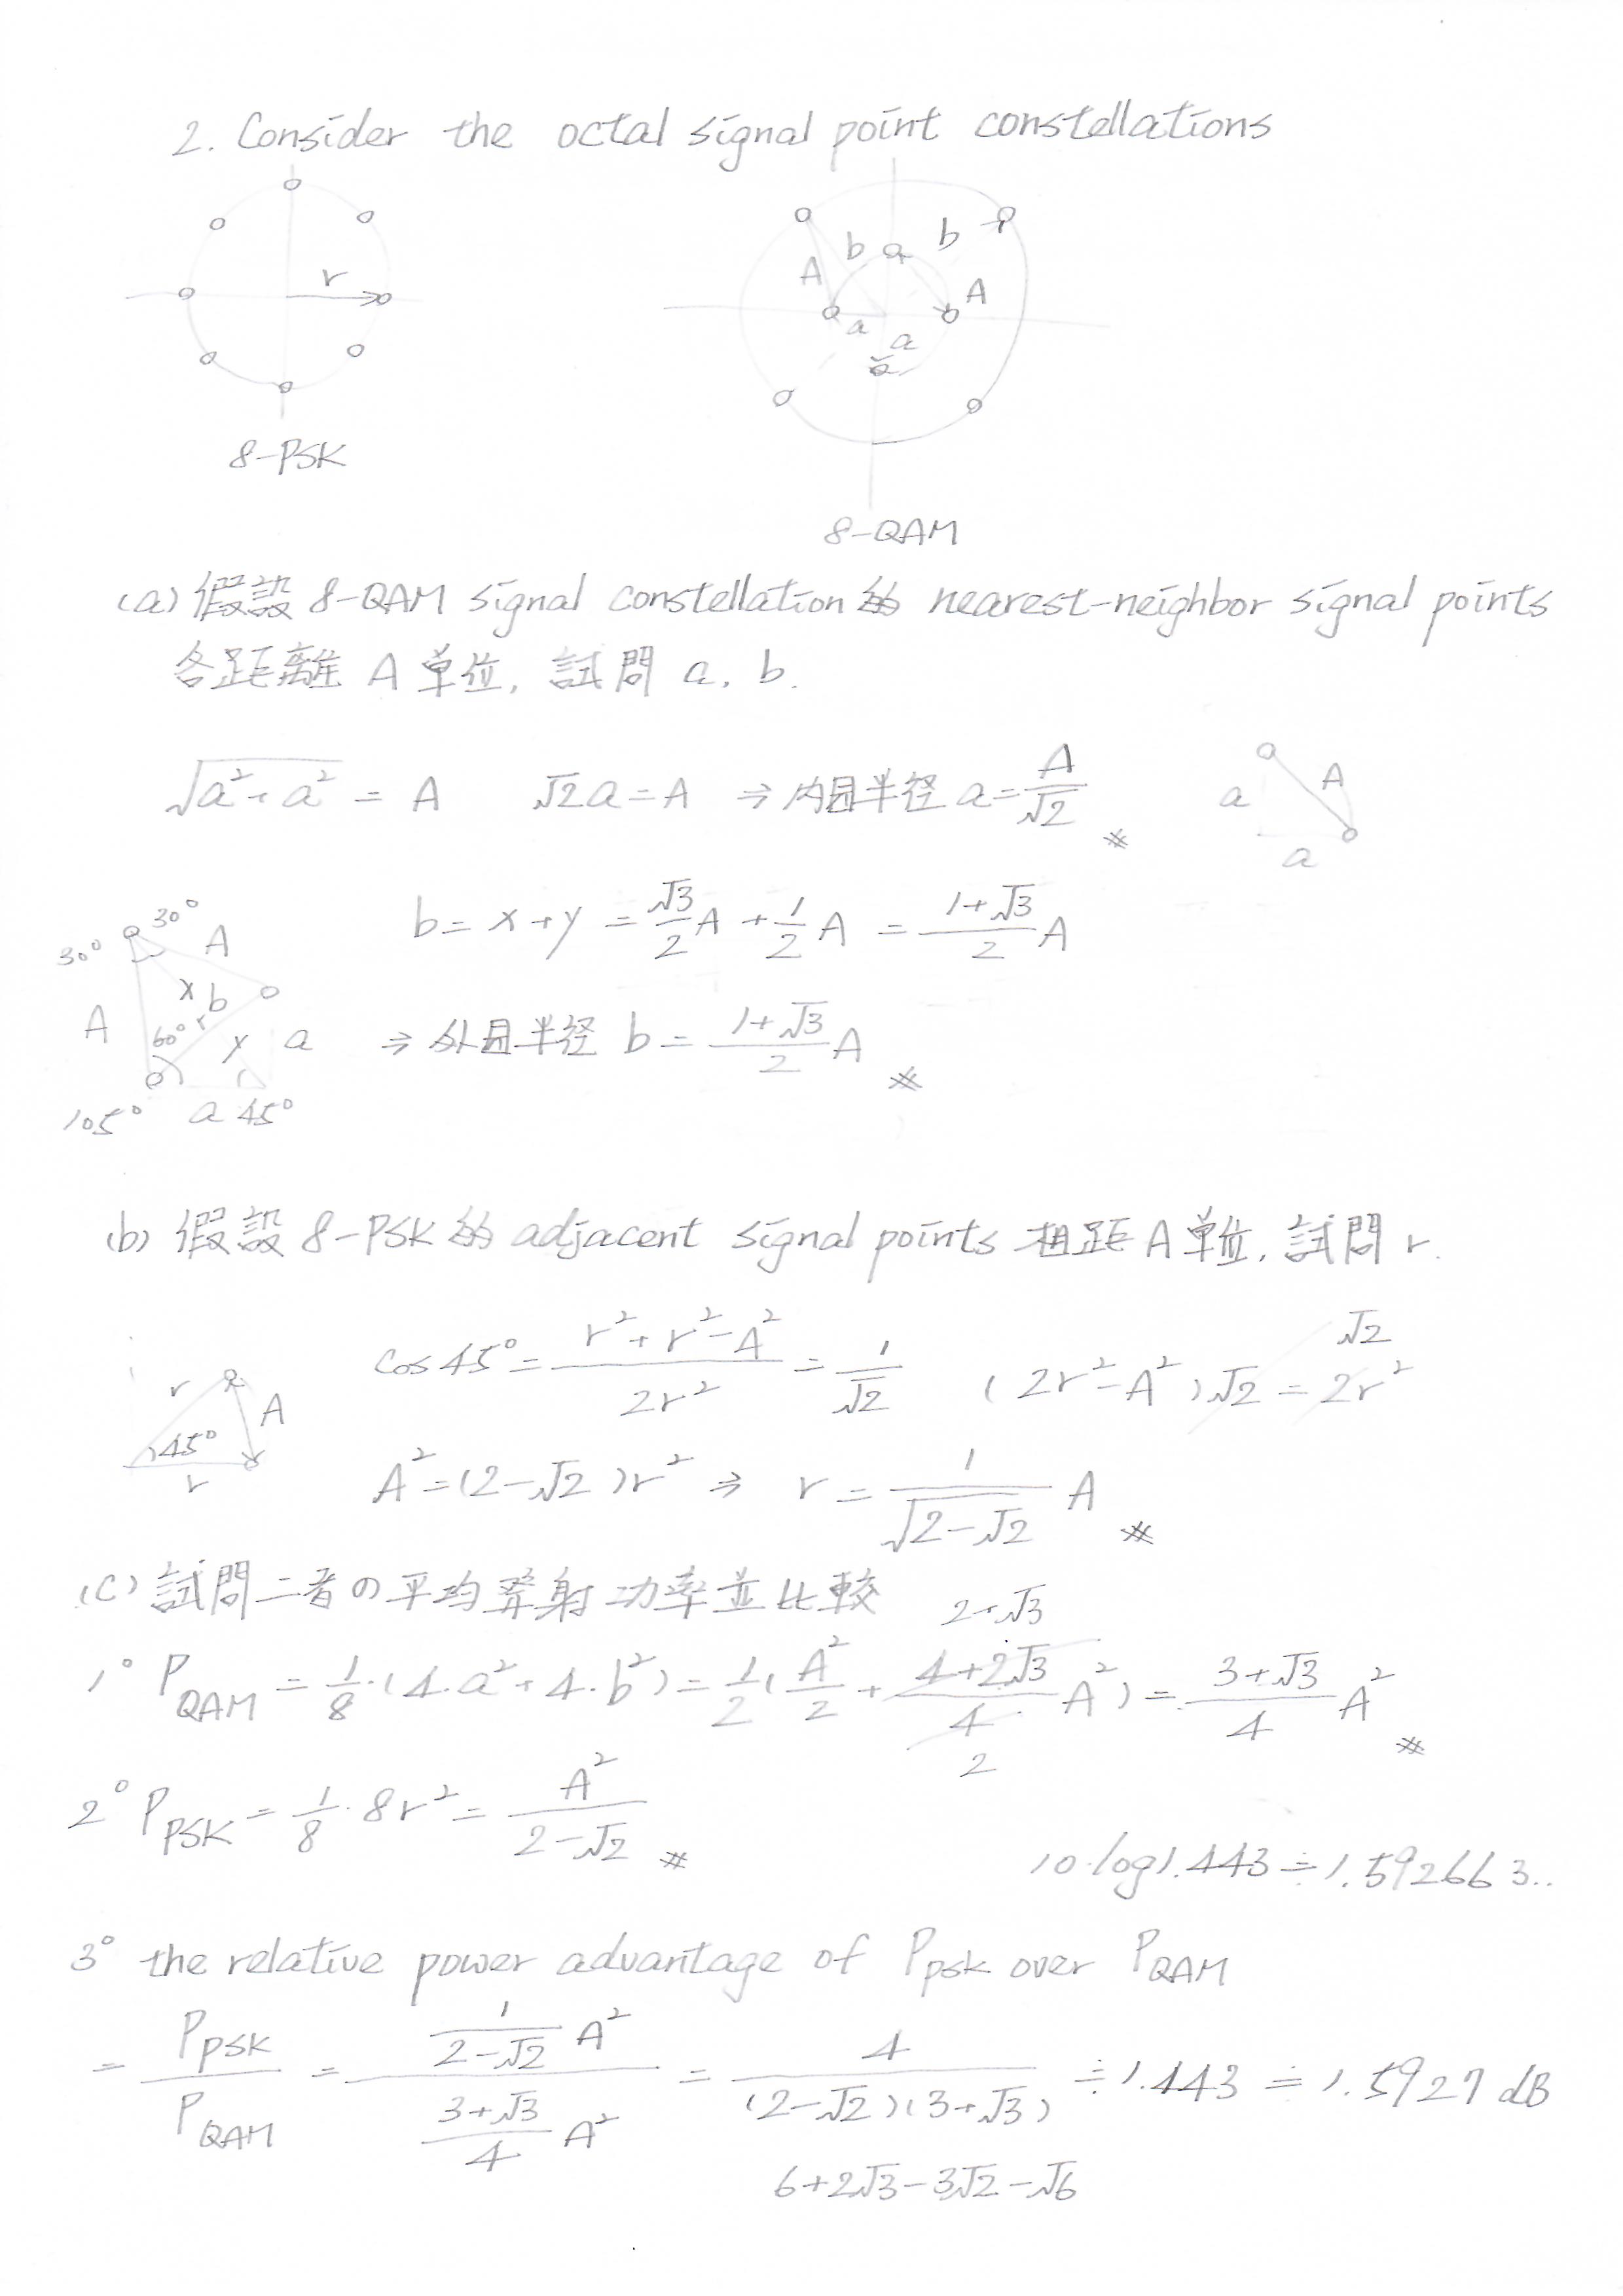 2. Consider the octal signal point constellations
r
8-PSK
b b
A A
a a
8-QAM
(a) 假設 8-QAM signal constellation 的 nearest-neighbor signal points
各距離 A 單位, 試問 a, b.
√(a²+a²) = A √2a=A ⇒ 內圆半径 a=A/√2 ※
a A
a
b = x+y = √3/2 A + 1/2 A = (1+√3)/2 A
30° 30° A
A x b r
60° y a
105° a 45°
⇒ 外圆半径 b = (1+√3)/2 A ※
(b) 假設 8-PSK 的 adjacent signal points 相距 A 單位, 試問 r.
cos45° = (r²+r²-A²)/2r² = 1/√2 (2r²-A²)√2 = 2r² √2
r A
45°
r
A² = (2-√2)r² ⇒ r = 1/√(2-√2) A ※
(c) 試問二者の平均發射功率並比較
1° P_QAM = 1/8·(4·a²+4·b²) = 1/2(A²/2 + (4+2√3)/4 A²) = (3+√3)/4 A² ※
2+√3
2
2° P_PSK = 1/8·8r² = A²/(2-√2) ※
10·log1.443≒1.592663..
3° the relative power advantage of P_PSK over P_QAM
= P_PSK/P_QAM = (1/(2-√2) A²)/((3+√3)/4 A²) = 4/((2-√2)(3+√3)) ≒ 1.443 ≒ 1.5927 dB
6+2√3-3√2-√6